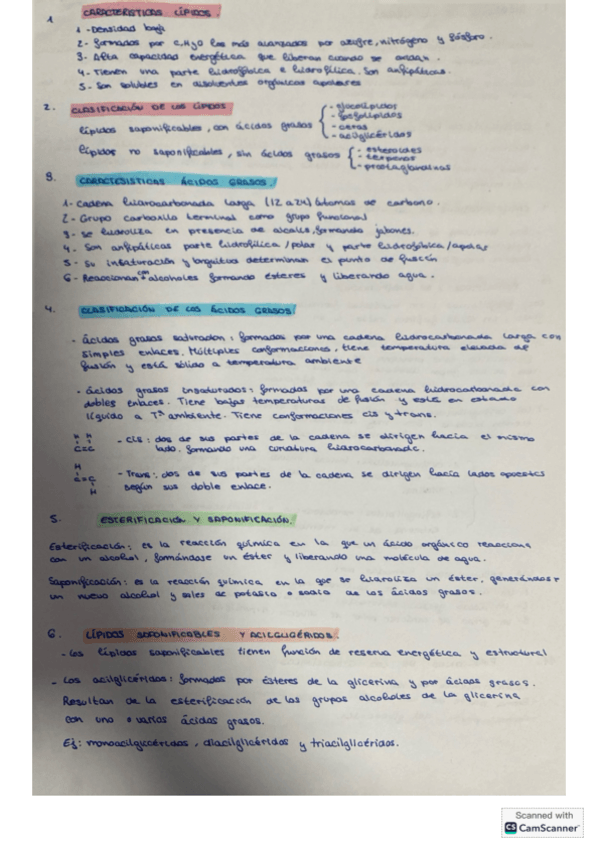 1 CARACTERÍSTICAS LÍPIDOS.
1-Densidad baja
2- Formados por C,H,O los más avanzados por azufre, nitrógeno y fósforo.
3- Alta capacidad energética que liberan cuando se oxidan.
4- Tienen una parte hidrofóbica e hidrofílica, son anfipáticas.
5- Son solubles en disolventes orgánicos apolares
2. CLASIFICACIÓN DE LOS LÍPIDOS
lípidos saponificables, con ácidos grasos
- glucolípidos
- fosfolípidos
- ceras
- acilglicéridos
lípidos no saponificables, sin ácidos grasos
- esteroides
- terpenos
- prostaglandinas
3. CARACTERISTICAS ÁCIDOS GRASOS.
1- Cadena hidrocarbonada larga (12 a 24) átomos de carbono.
2- Grupo carboxilo terminal como grupo funcional
3- se hidroliza en presencia de álcalis, formando jabones.
4. Son anfipáticas parte hidrofílica /polar y parte hidrofóbica/apolar
5- Su insaturación y longuitud determinan el punto de fusión
6- Reaccionan con alcoholes formando ésteres y liberando agua.
4. CLASIFICACIÓN DE LOS ÁCIDOS GRASOS
- ácidos grasos saturados: formados por una cadena hidrocarbonada larga con
simples enlaces. Múltiples conformaciones, tiene temperatura elevada de
fusión y está sólido a temperatura ambiente
- ácidos grasos insaturados: formados por una cadena hidrocarbonada con
dobles enlaces. Tiene bajas temperaturas de fusión y está en estado
líquido a Tª ambiente. Tiene conformaciones cis y trans.
H H
C=C
- Cis: dos de sus partes de la cadena se dirigen hacia el mismo
lado, formando una curvatura
H
C=C
H
- Trans: dos de sus partes de la cadena se dirigen hacia lados opuestos
según sus doble enlace.
5. ESTERIFICACIÓN Y SAPONIFICACIÓN.
Esterificación: es la reacción química en la que un ácido orgánico reacciona
con un alcohol, formándose un éster y liberando una molécula de agua.
Saponificación: es la reacción química en la que se hidroliza un éster, generándose
un nuevo alcohol y sales de potasio o sodio de los ácidos grasos.
6. LÍPIDOS SAPONIFICABLES Y ACILGLICÉRIDOS.
- Los lípidos saponificables tienen función de reserva energética y estructural
- Los acilglicéridos: formados por ésteres de la glicerina y por ácidos grasos.
Resultan de la esterificación de los grupos alcoholes de la glicerina
con uno o varios ácidos grasos.
Ej: monoacilglicéridos, diacilglicéridos y triacilglicéridos.
Scanned with
CS CamScanner